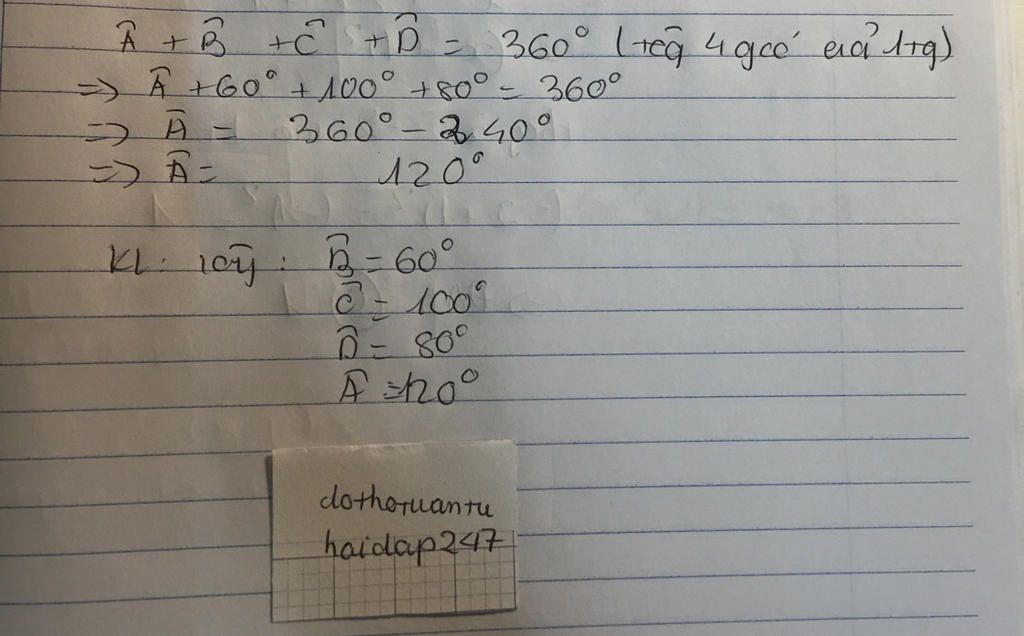 Â + B̂ + Ĉ + D̂ = 360° (tcg 4 góc của 1 tg)
=> Â + 60° + 100° + 80° = 360°
=> Â = 360° - 240°
=> Â = 120°
KL: vậy: B̂ = 60°
Ĉ = 100°
D̂ = 80°
Â = 120°
dothotuantu
hoidap247